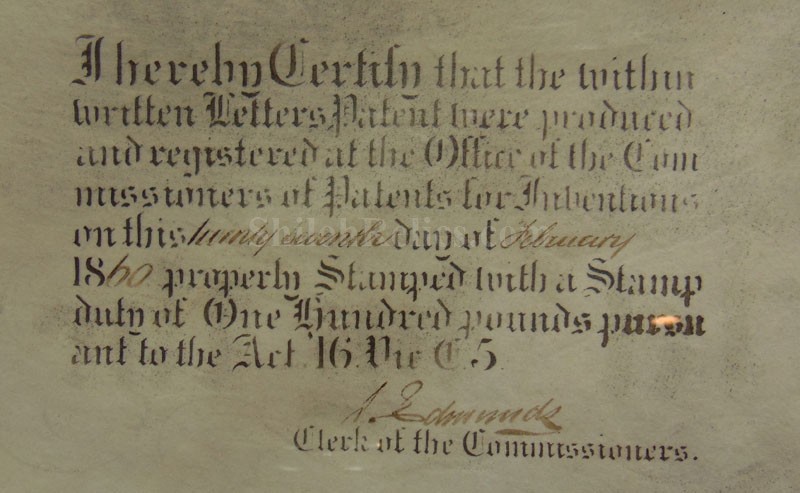 I hereby Certify that the within
written Letters Patent were produced
and registered at the Office of the Com
missioners of Patents for Inventions
on this twenty seventh day of February
1860 properly Stamped with a Stamp
duty of One Hundred pounds pursu
ant to the Act 16. Vic C. 5
Edmunds
Clerk of the Commissioners.